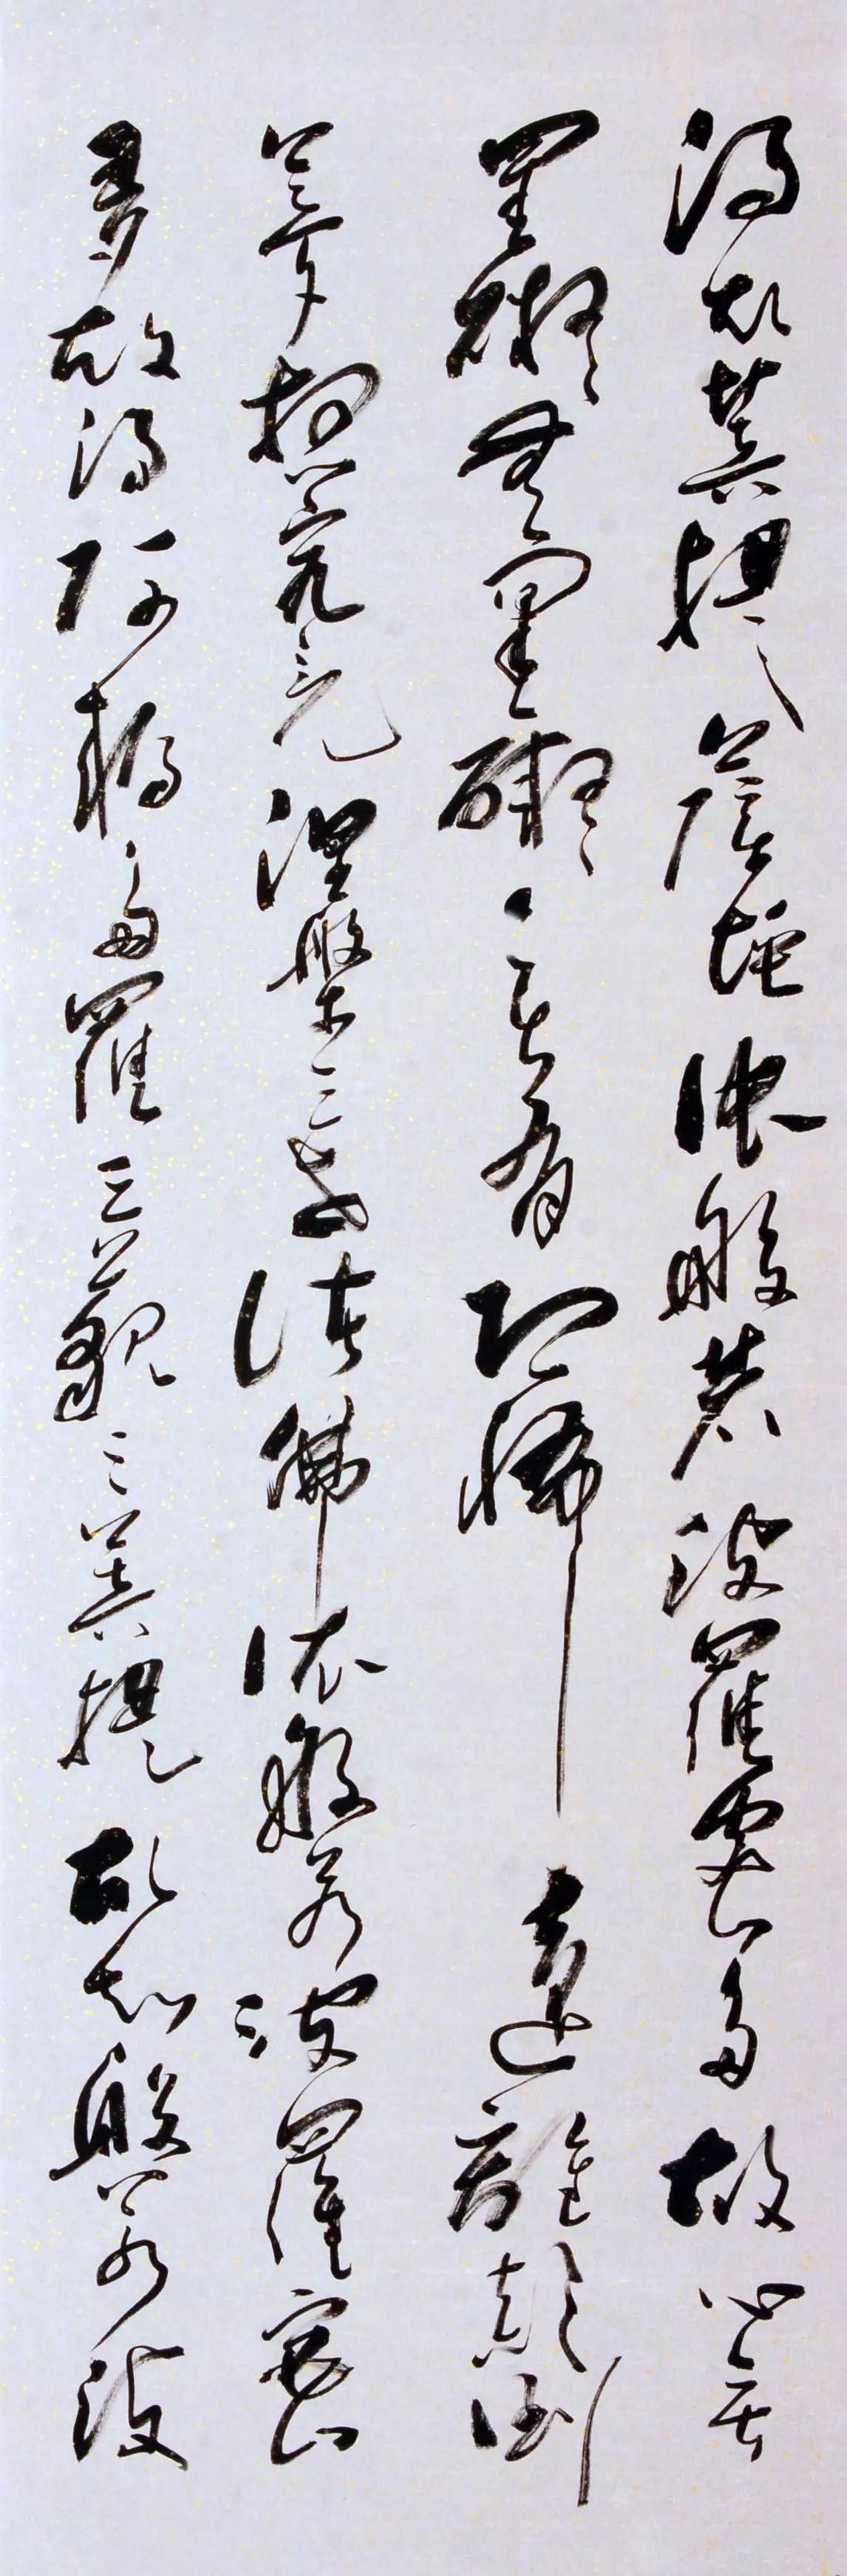 得故菩提薩埵依般若波羅蜜多故心无
罣礙無罣礙无有恐怖遠離顛倒
夢想究竟涅槃三世諸佛依般若波羅蜜
多故得阿耨多羅三藐三菩提故知般若波